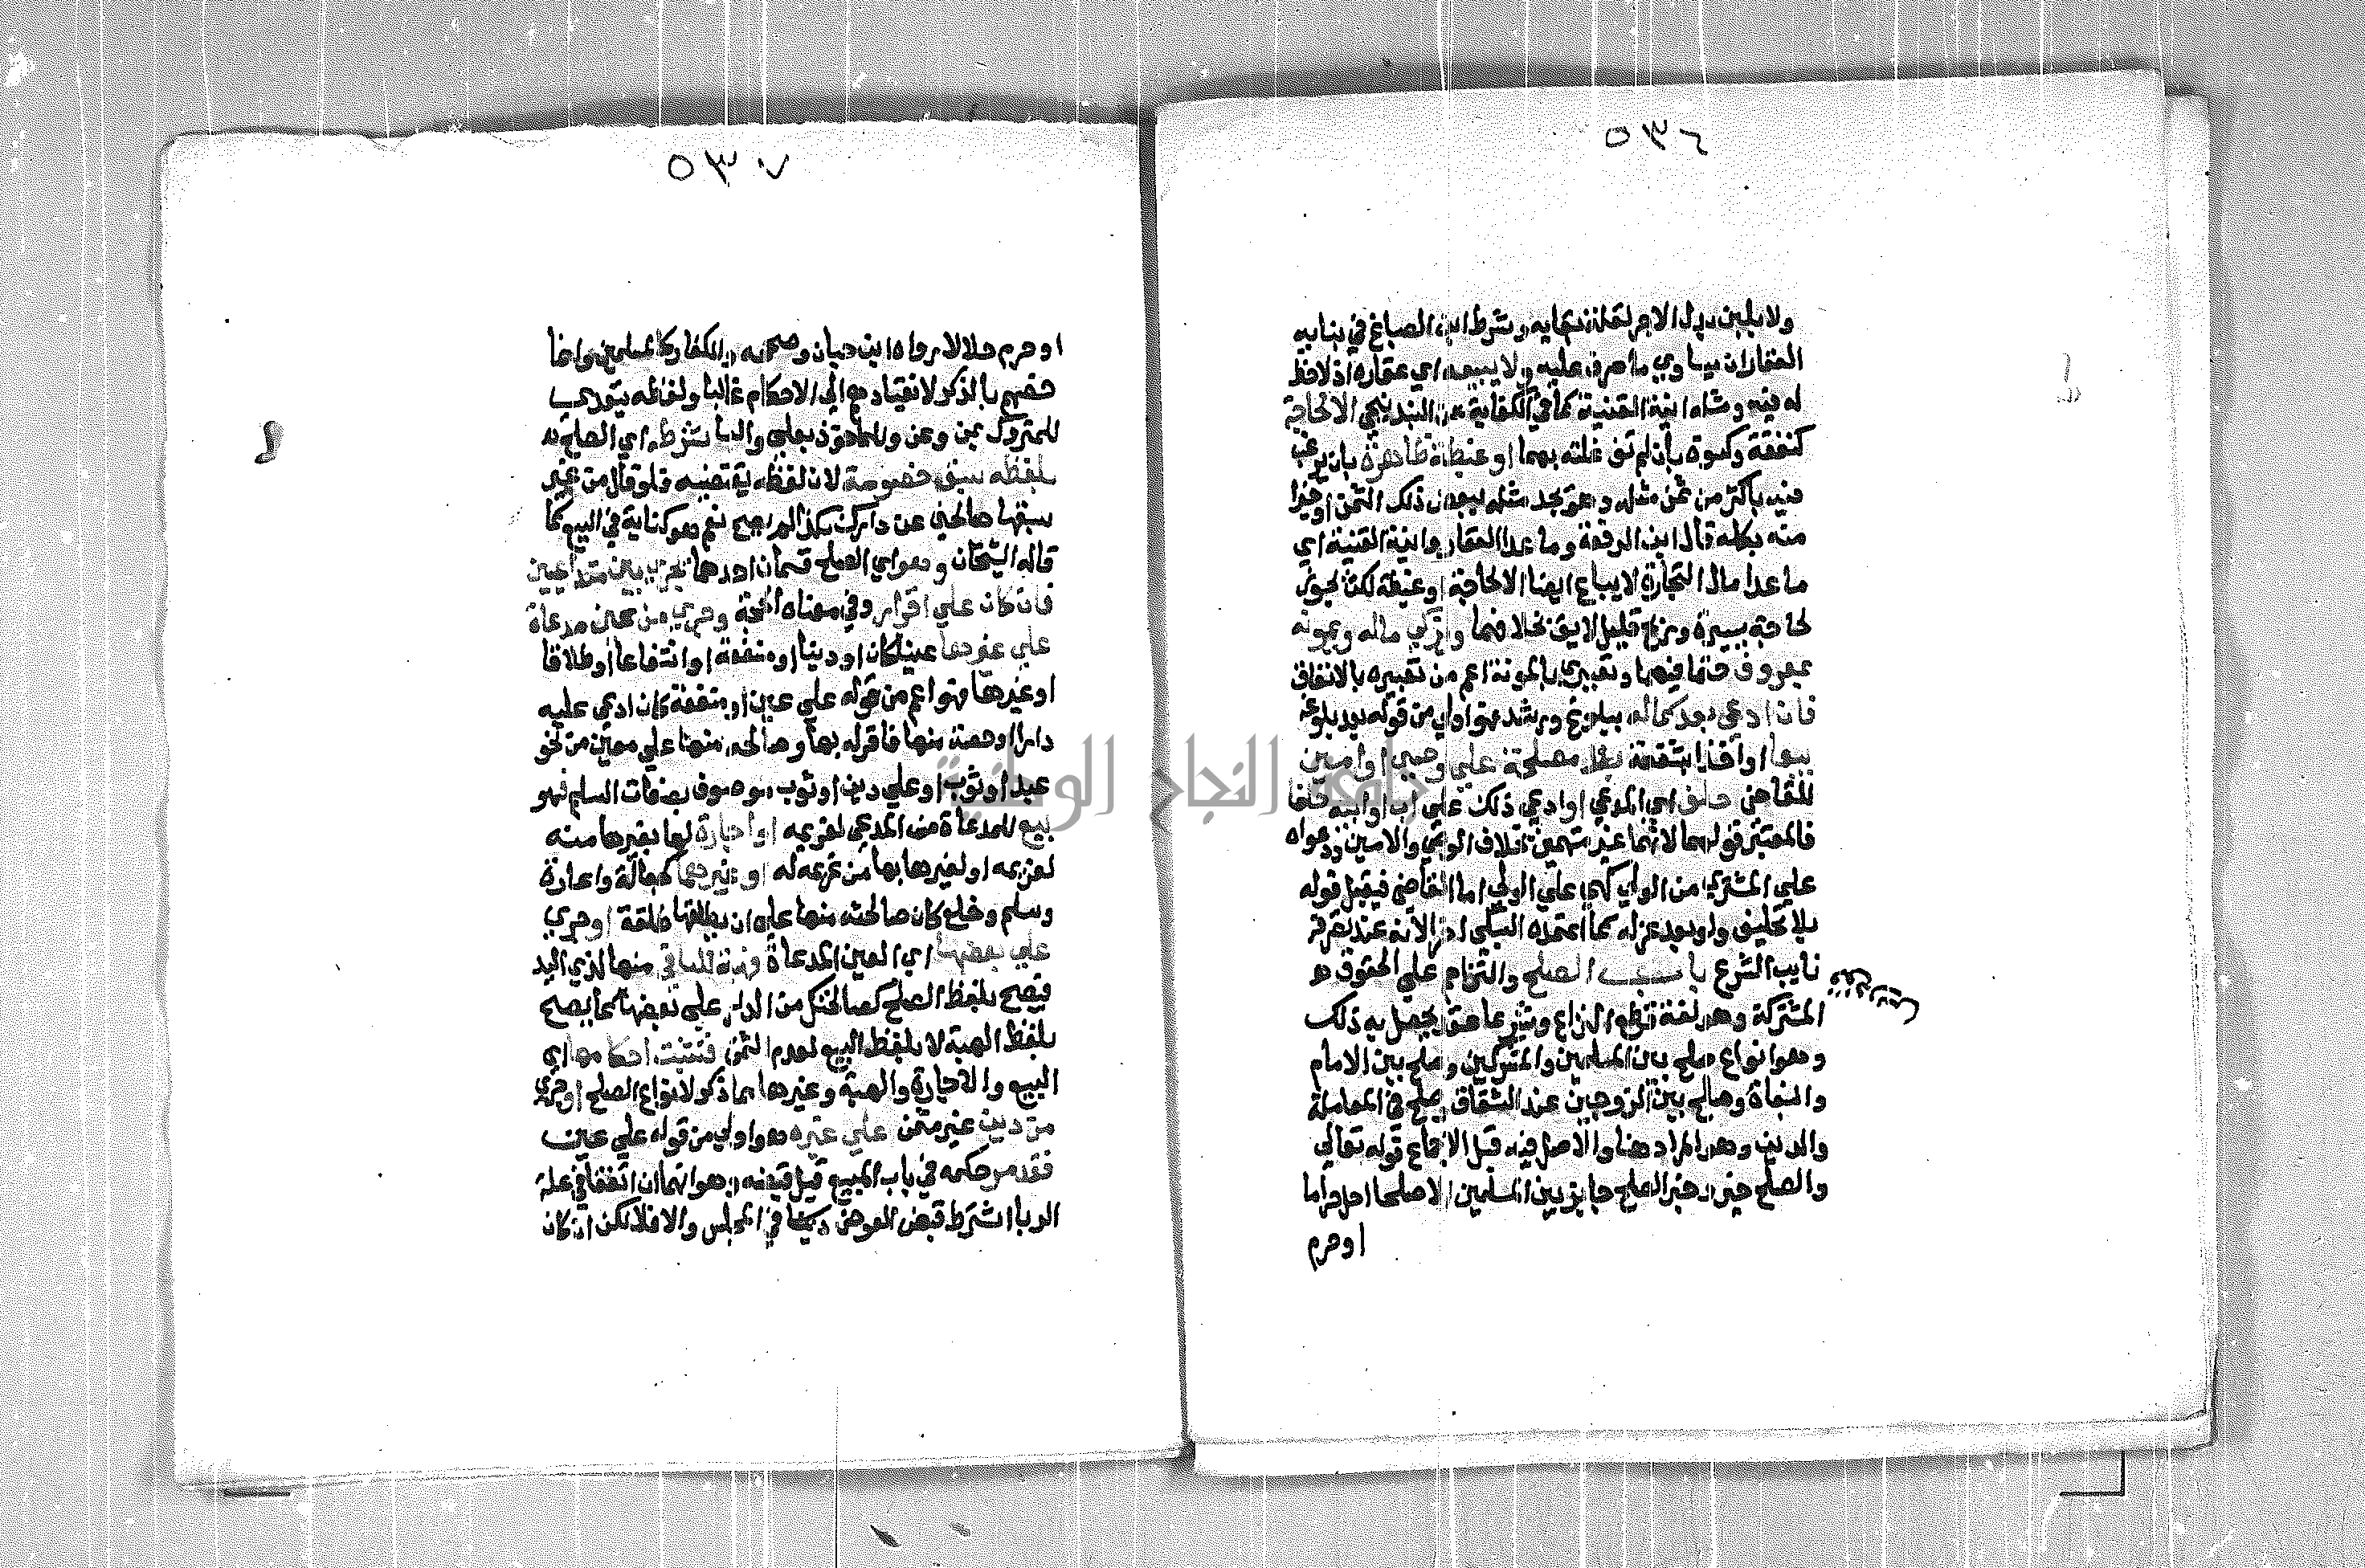 ٥٣٦
ولا بلبن بدل الاجر لقلة نهايه وشرط ابن الصباغ في بنايه
العقار ان يساوي ما صرف عليه ولا يبيعه اي عقاره اذ لا حظ
له فيه ومثله انية القنية كما في الكفاية عن البندنيجي الا لحاجة
كنفقة وكسوة بان لم تف غلته بهما او غبطة ظاهرة بان يرغب
فيه باكثر من ثمن مثله وهو يجد مثله ببعض ذلك الثمن او خيرا
منه بكله قال ابن الرفعة وما عدا العقار وانية القنية اي
ما عدا مال التجارة لا يباع ايضا الا لحاجة او غبطة لكن يجوز
لحاجة يسيرة وربح قليل لايق بخلافهما ويزكي ماله ويمونه
بمعروف حتما فيهما وتعبيري بالمونة اعم من تعبيره بالانفاق
فان ادعي بعد كماله ببلوغ ورشد فهو اولي من قوله بعد بلوغه
بيعا او اخذا بشفعة بلا مصلحة علي وصي او امين
للقاضي حلف اي المدعي او ادعي ذلك علي اب او ابيه حلفا
فالمعتبر قولهما لانهما غير متهمين بخلاف الوصي والامين ودعواه
علي المشتري من الولي كهي علي الولي اما القاضي فيقبل قوله
بلا تحليف ولو بعد عزله كما اعتمده السبكي اخرا لانه عند تصرفه
نايب الشرع باب الصلح والتزاحم علي الحقوق
المشتركة وهو لغة قطع النزاع وشرعا عقد يحصل به ذلك
وهو انواع صلح بين المسلمين والمشركين وصلح بين الامام
والبغاة وصلح بين الزوجين عند الشقاق وصلح في المعاملة
والدين وهو المراد هنا والاصل فيه قبل الاجماع قوله تعالي
والصلح خير وخبر الصلح جايز بين المسلمين الا صلحا احل حراما
او حرم
٥٣٧
او حرم حلالا رواه ابن حبان وصححه والكفار كالمسلمين وانما
خصهم بالذكر لانقيادهم الي الاحكام غالبا ولفظه يتعدي
للمتروك بمن وعن وللماخوذ بعلي والبا شرطه اي الصلح
بلفظه سبق خصومة لان لفظه يقتضيه فلو قال من غير
سبقها صالحني عن دارك بكذا لم يصح نعم هو كناية في البيع كما
قاله الشيخان وهو اي الصلح قسمان احدهما يجري بين متداعيين
فان كان علي اقرار وفي معناه الحجة وجري من عين مدعاة
علي غيرها عينا كان او دينا او منفعة او انتفاعا او طلاقا
او غيرها فهو اعم من قوله علي عين او منفعة كان ادعي عليه
دارا او حصة منها فاقر له بها وصالحه منها علي معين من نحو
عبد او ثوب او علي دين او ثوب موصوف بصفات السلم فهو
بيع للمدعاة من المدعي لغريمه او اجارة لها بغيرها منه
لغريمه او لغيرها بها من غريمه له او غيرهما كجعالة واعارة
وسلم وخلع كان صالحته منها علي ان يطلقها طلقة او جري
علي بعضها اي العين المدعاة فهبة للباقي منها لذي اليد
فيصح بلفظ الصلح كصالحتك من الدار علي بعضها كما يصح
بلفظ الهبة لا بلفظ البيع لعدم الثمن فتثبت احكامها اي
البيع والاجارة والهبة وغيرها مما ذكر لانواع الصلح او جري
من دين غير مثمن علي غيره هو اولي من قوله علي عين
فقد مر حكمه في باب المبيع قبل قبضه وهو انهما ان اتفقا في علة
الربا اشترط قبض العوض في المجلس والا فلا لكن ان كان